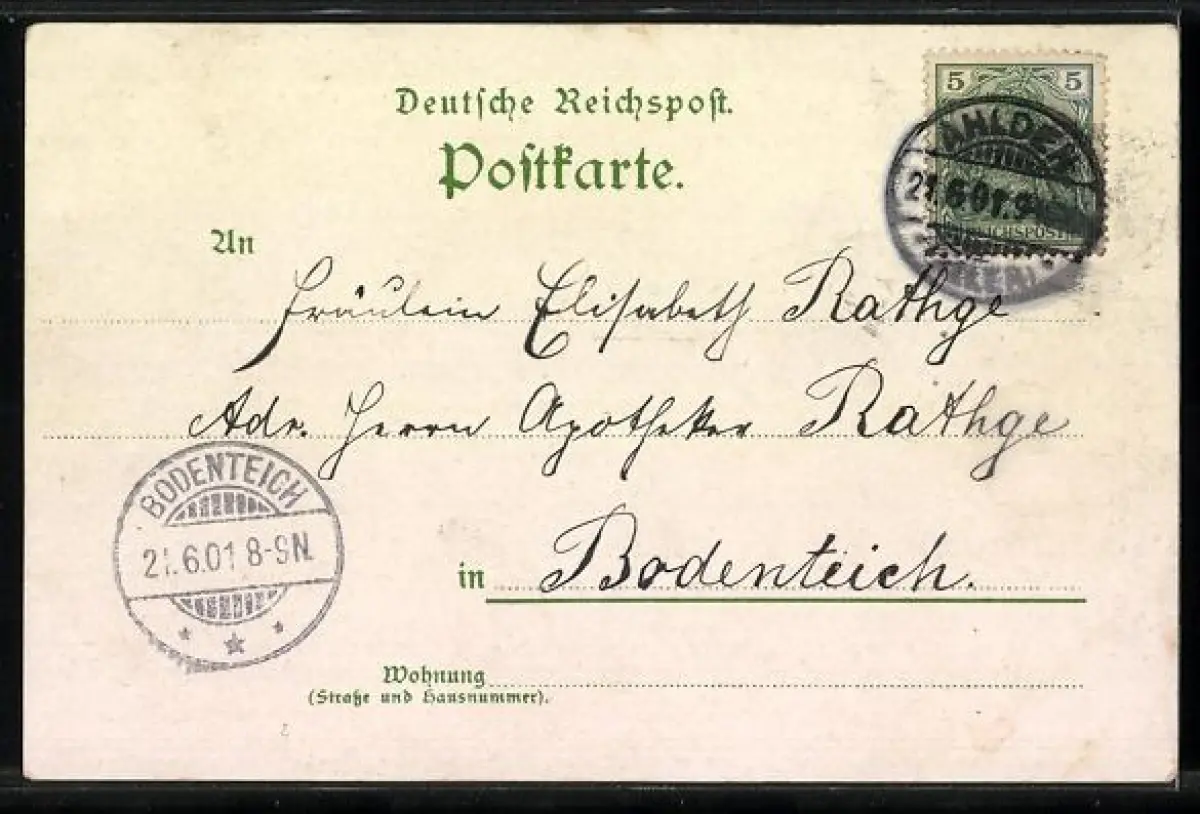 Deutsche Reichspost.
Postkarte.
5 5
AHLDEN
21.6.01.9
REICHSPOST
An
Fräulein Elisabeth Rathge
Adr. Herrn Apotheker Rathge
BODENTEICH
21.6.01 8-9N.
in Bodenteich.
Wohnung
(Straße und Hausnummer).